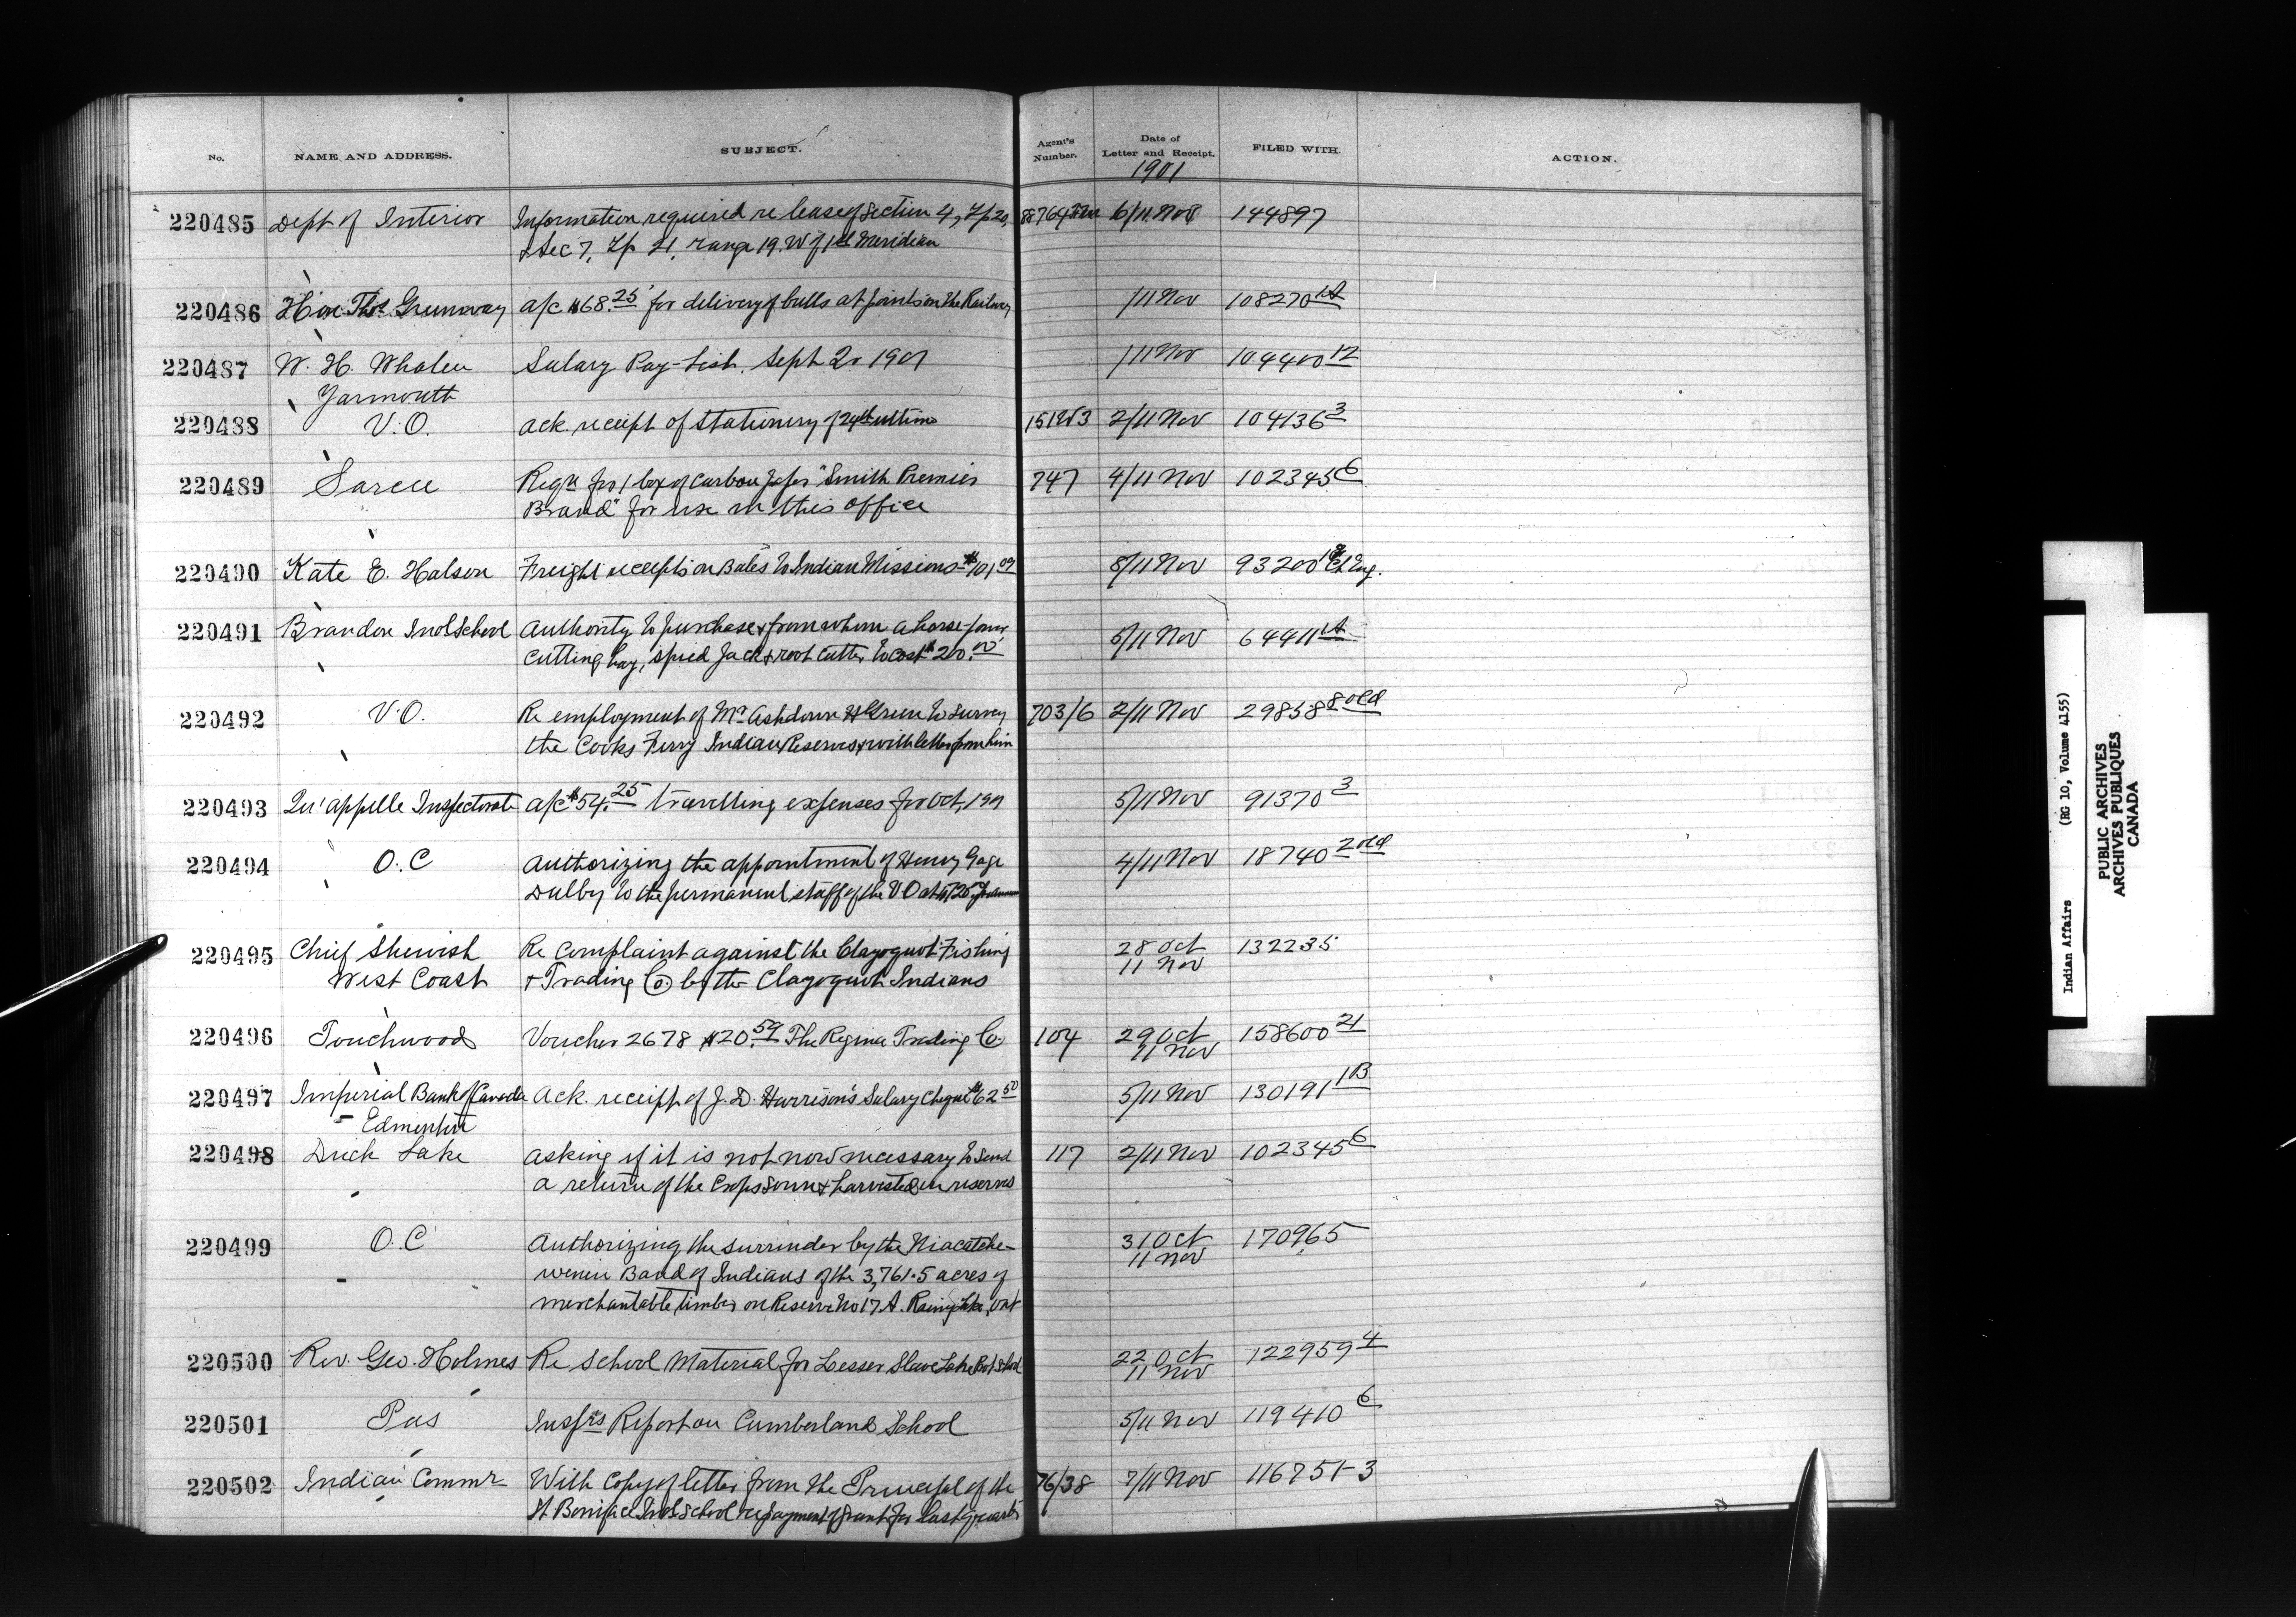 No. NAME AND ADDRESS. SUBJECT. Agent's Number. Date of Letter and Receipt. FILED WITH. ACTION.
1901
220485 Dept of Interior Information required re lease of Section 4, Tp 20, 6/11 Nov 144897
& Sec 7, Tp 21, range 19. W of 1st Meridian
220486 Hon. Thos Greenway a/c $68.25 for delivery of bulls at points on the Railway 1/11 Nov 108270 1A
220487 W. H. Whalen Salary Pay-List. Sept 2r 1901 1/11 Nov 104400 12
Yarmouth
220488 V.O. Ack. receipt of Stationery of 24th ultimo 2/11 Nov 104136 3
220489 Sarcee Reqn for 1 box of carbon paper "Smith Premier 747 4/11 Nov 102345 6
Brand" for use in this office
220490 Kate E. Halson Freight receipts on Bales to Indian Missions $101.09 8/11 Nov 93200
220491 Brandon Indl School Authority to purchase & from whom a horse power 5/11 Nov 64411 1A
cutting hay, speed Jack & root cutter to cost $20.00
220492 V.O. Re employment of Mr Ashdown H Green to survey 703/6 2/11 Nov 29858 8 old
the Cooks Ferry Indian Reserves & with letter from him
220493 Qu'appelle Inspectorate a/c $54.25 travelling expenses for Oct, 1901 5/11 Nov 91370 3
220494 O.C Authorizing the appointment of Henry Gage 4/11 Nov 18740 2 old
Dalby to the permanent staff of the V O at
220495 Chief Shewish Re Complaint against the Clayoquot Fishing 28 Oct 132235
West Coast & Trading Co. by the Clayoquot Indians 11 Nov
220496 Touchwood Voucher 2678 $20.59 The Regina Trading Co. 104 29 Oct 158600 21
11 Nov
220497 Imperial Bank of Canada Ack. receipt of J. D. Harrison's Salary Cheque $62.50 5/11 Nov 130191 1B
Edmonton
220498 Duck Lake Asking if it is not now necessary to send 117 2/11 Nov 102345 6
a return of the Crops sown & harvested on reserves
220499 O.C Authorizing the surrender by the Niacatche- 31 Oct 170965
wenin Band of Indians of the 3,761.5 acres of 11 Nov
merchantable timber on Reserve No 17 A. Rainy Lake, Ont
220500 Rev. Geo. Holmes Re School Material for Lesser Slave Lake Bdg School 22 Oct 122959 4
11 Nov
220501 Pas Inspr's Report on Cumberland School 5/11 Nov 119410 6
220502 Indian Commr With Copy of letter from the Principal of the 76/38 7/11 Nov 116751-3
St Boniface Indl School re payment of grant for last quarter
Indian Affairs (RG 10, Volume 4155)
PUBLIC ARCHIVES
ARCHIVES PUBLIQUES
CANADA